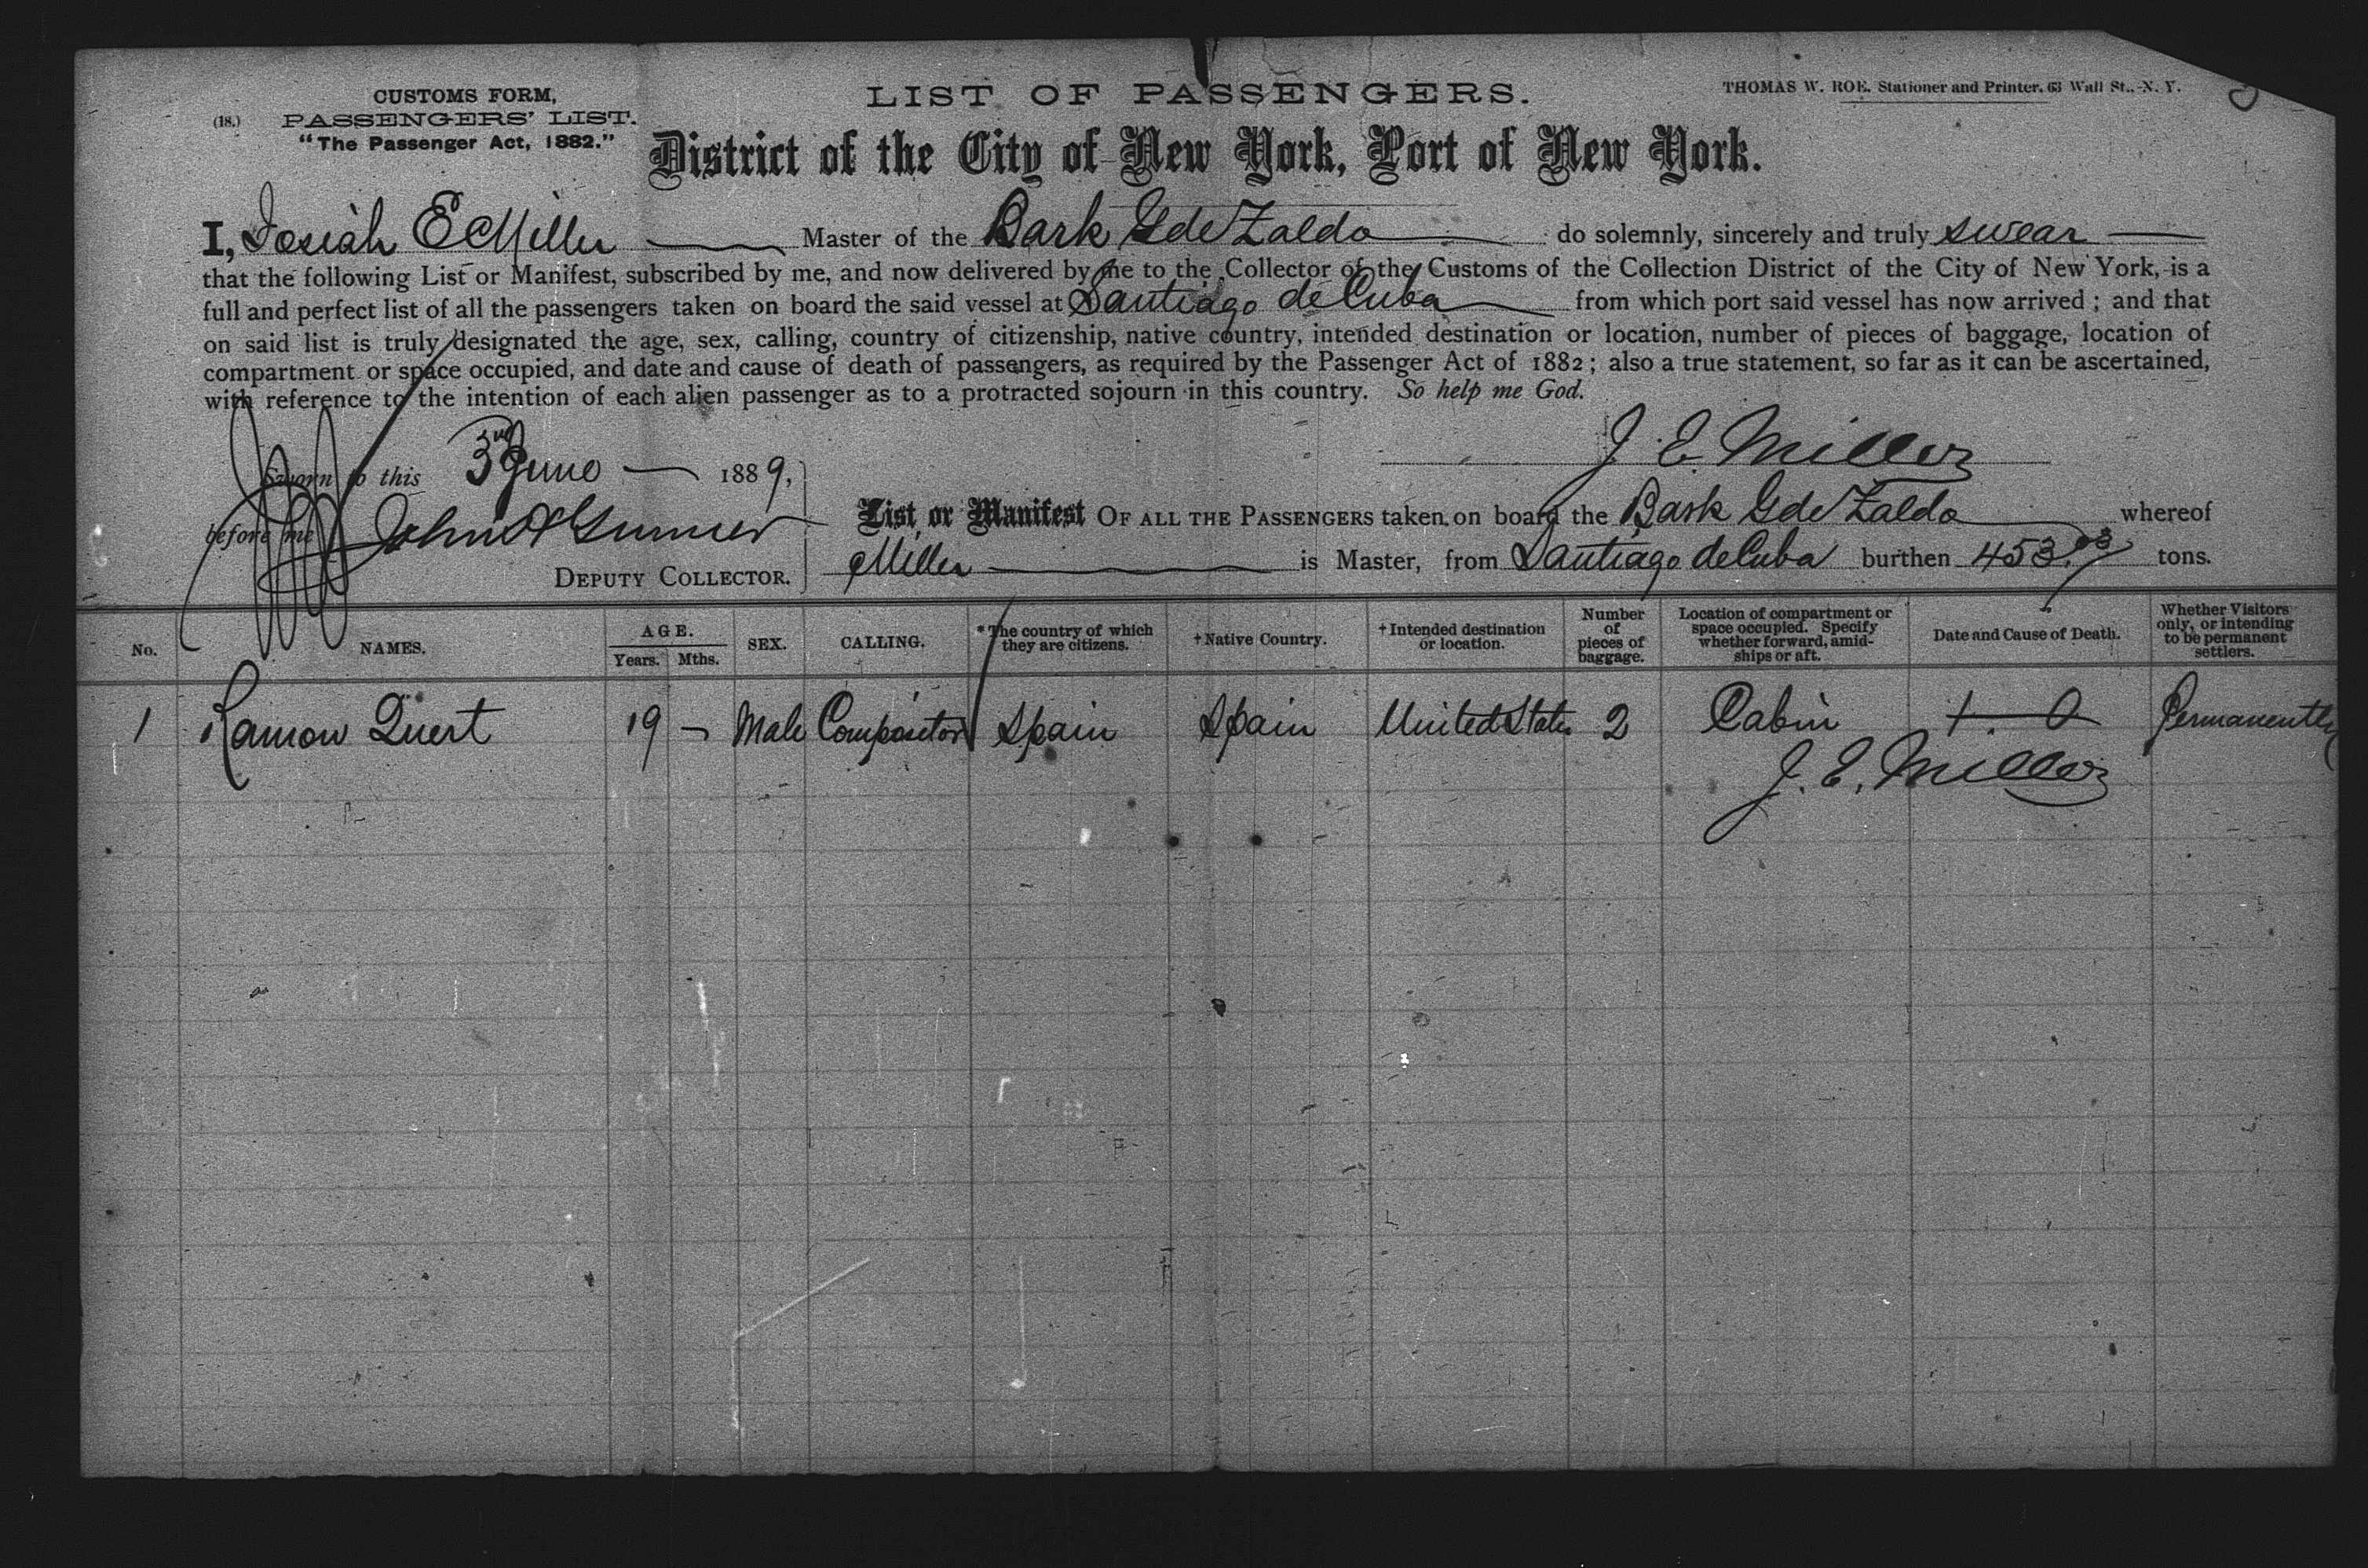 CUSTOMS FORM,
(18.) PASSENGERS' LIST.
"The Passenger Act, 1882."
LIST OF PASSENGERS.
THOMAS W. ROE. Stationer and Printer. 63 Wall St., N. Y.
District of the City of New York, Port of New York.
I, Josiah E Miller Master of the Bark G de Zaldo do solemnly, sincerely and truly swear
that the following List or Manifest, subscribed by me, and now delivered by me to the Collector of the Customs of the Collection District of the City of New York, is a
full and perfect list of all the passengers taken on board the said vessel at Santiago de Cuba from which port said vessel has now arrived ; and that
on said list is truly designated the age, sex, calling, country of citizenship, native country, intended destination or location, number of pieces of baggage, location of
compartment or space occupied, and date and cause of death of passengers, as required by the Passenger Act of 1882 ; also a true statement, so far as it can be ascertained,
with reference to the intention of each alien passenger as to a protracted sojourn in this country. So help me God.
J. E. Miller
Sworn to this 3rd June 1889,
before me John
DEPUTY COLLECTOR.
List or Manifest OF ALL THE PASSENGERS taken on board the Bark G de Zaldo whereof
Miller is Master, from Santiago de Cuba burthen 453.93 tons.
No. NAMES. AGE. Years. Mths. SEX. CALLING. *The country of which they are citizens. †Native Country. †Intended destination or location. Number of pieces of baggage. Location of compartment or space occupied. Specify whether forward, amidships or aft. Date and Cause of Death. Whether Visitors only, or intending to be permanent settlers.
1 Ramon Quert 19 — Male Compositor Spain Spain United States 2 Cabin + 0 Permanently
J. E. Miller